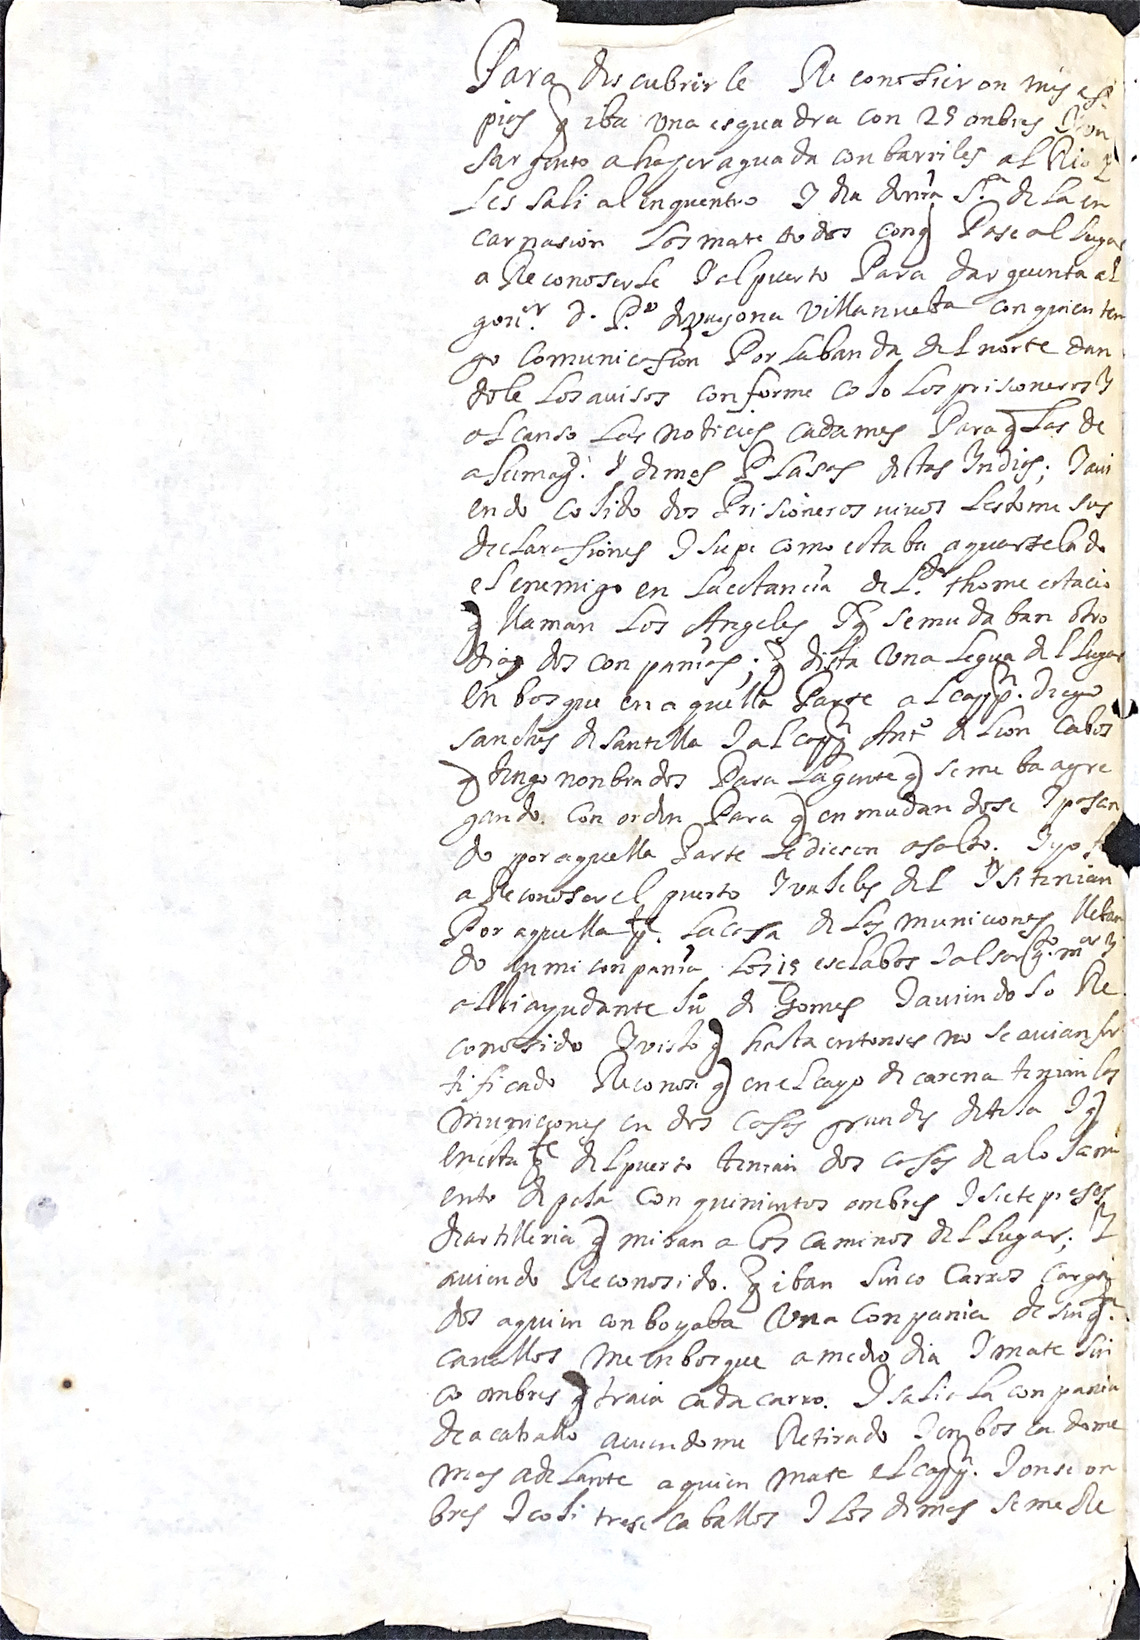 Para descubrirle Reconosieron mis es
pias q iba una esquadra con 25 onbres I un
sargento a haser aguada con barriles al Rio q
Les sali al enquentro I dia de nra Sra de la en
carnasion Los mate todos con q Pase al Lugar
a Reconoserle I al puerto Para dar quenta al
gor. D. Po. de Vayona Villanueba con quien ten
go Comunicasion Por la banda del norte dan
dole Los auisos conforme cojo Los prisioneros I
alcanso Las noticias cada mes Para q Las de
a su magd. I demas Plasas destas Indias; I aui
endo cojido dos Prisioneros uiuos Les tome sus
declarasiones I supe como estaba aquartelado
el enemigo en La estancia de Ldo. thome estacio
q llaman Los Angeles I q se mudaban otro
dia dos conpanias; q dista Una Legua del Lugar
Enbosque en aquella Parte al cappn. diego
sanches de santilla I al cappn Anto de Lion Cabos
q tengo nonbrados Para La gente q se me ba agre
gando. Con orden Para q en mudandose I pasan
do por aquella Parte Le diesen asalto. I yo
a Reconoser el puerto I uaseles del I si tenian
Por aquella pte. La casa de Las municiones lleban
do en mi conpania Los 15 esclabos I al sargto. mor I
a Mi ayudante Ju de Gomes I auiendolo Re
conosido I uisto q hasta entonses no se auian for
tificado Reconosi q en el cayo de carena tenian las
municiones en dos casas grandes de teja I q
en esta pte del puerto tenian dos casas de alojami
ento de paja con quinientos ombres I siete piesas
de artilleria q miran a los caminos del Lugar; I
auiendo Reconosido. q iban sinco Carros carga
dos a quien conboyaba Una Conpania de sinqta.
cauallos me enbosque a medio dia I mate sin
co ombres q traia cada carro. I salio la conpania
de a caballo auiendome Retirado I enboscadome
mas adelante a quien mate el cappn. I onse on
bres I coji trese caballos I Los demas se me Re